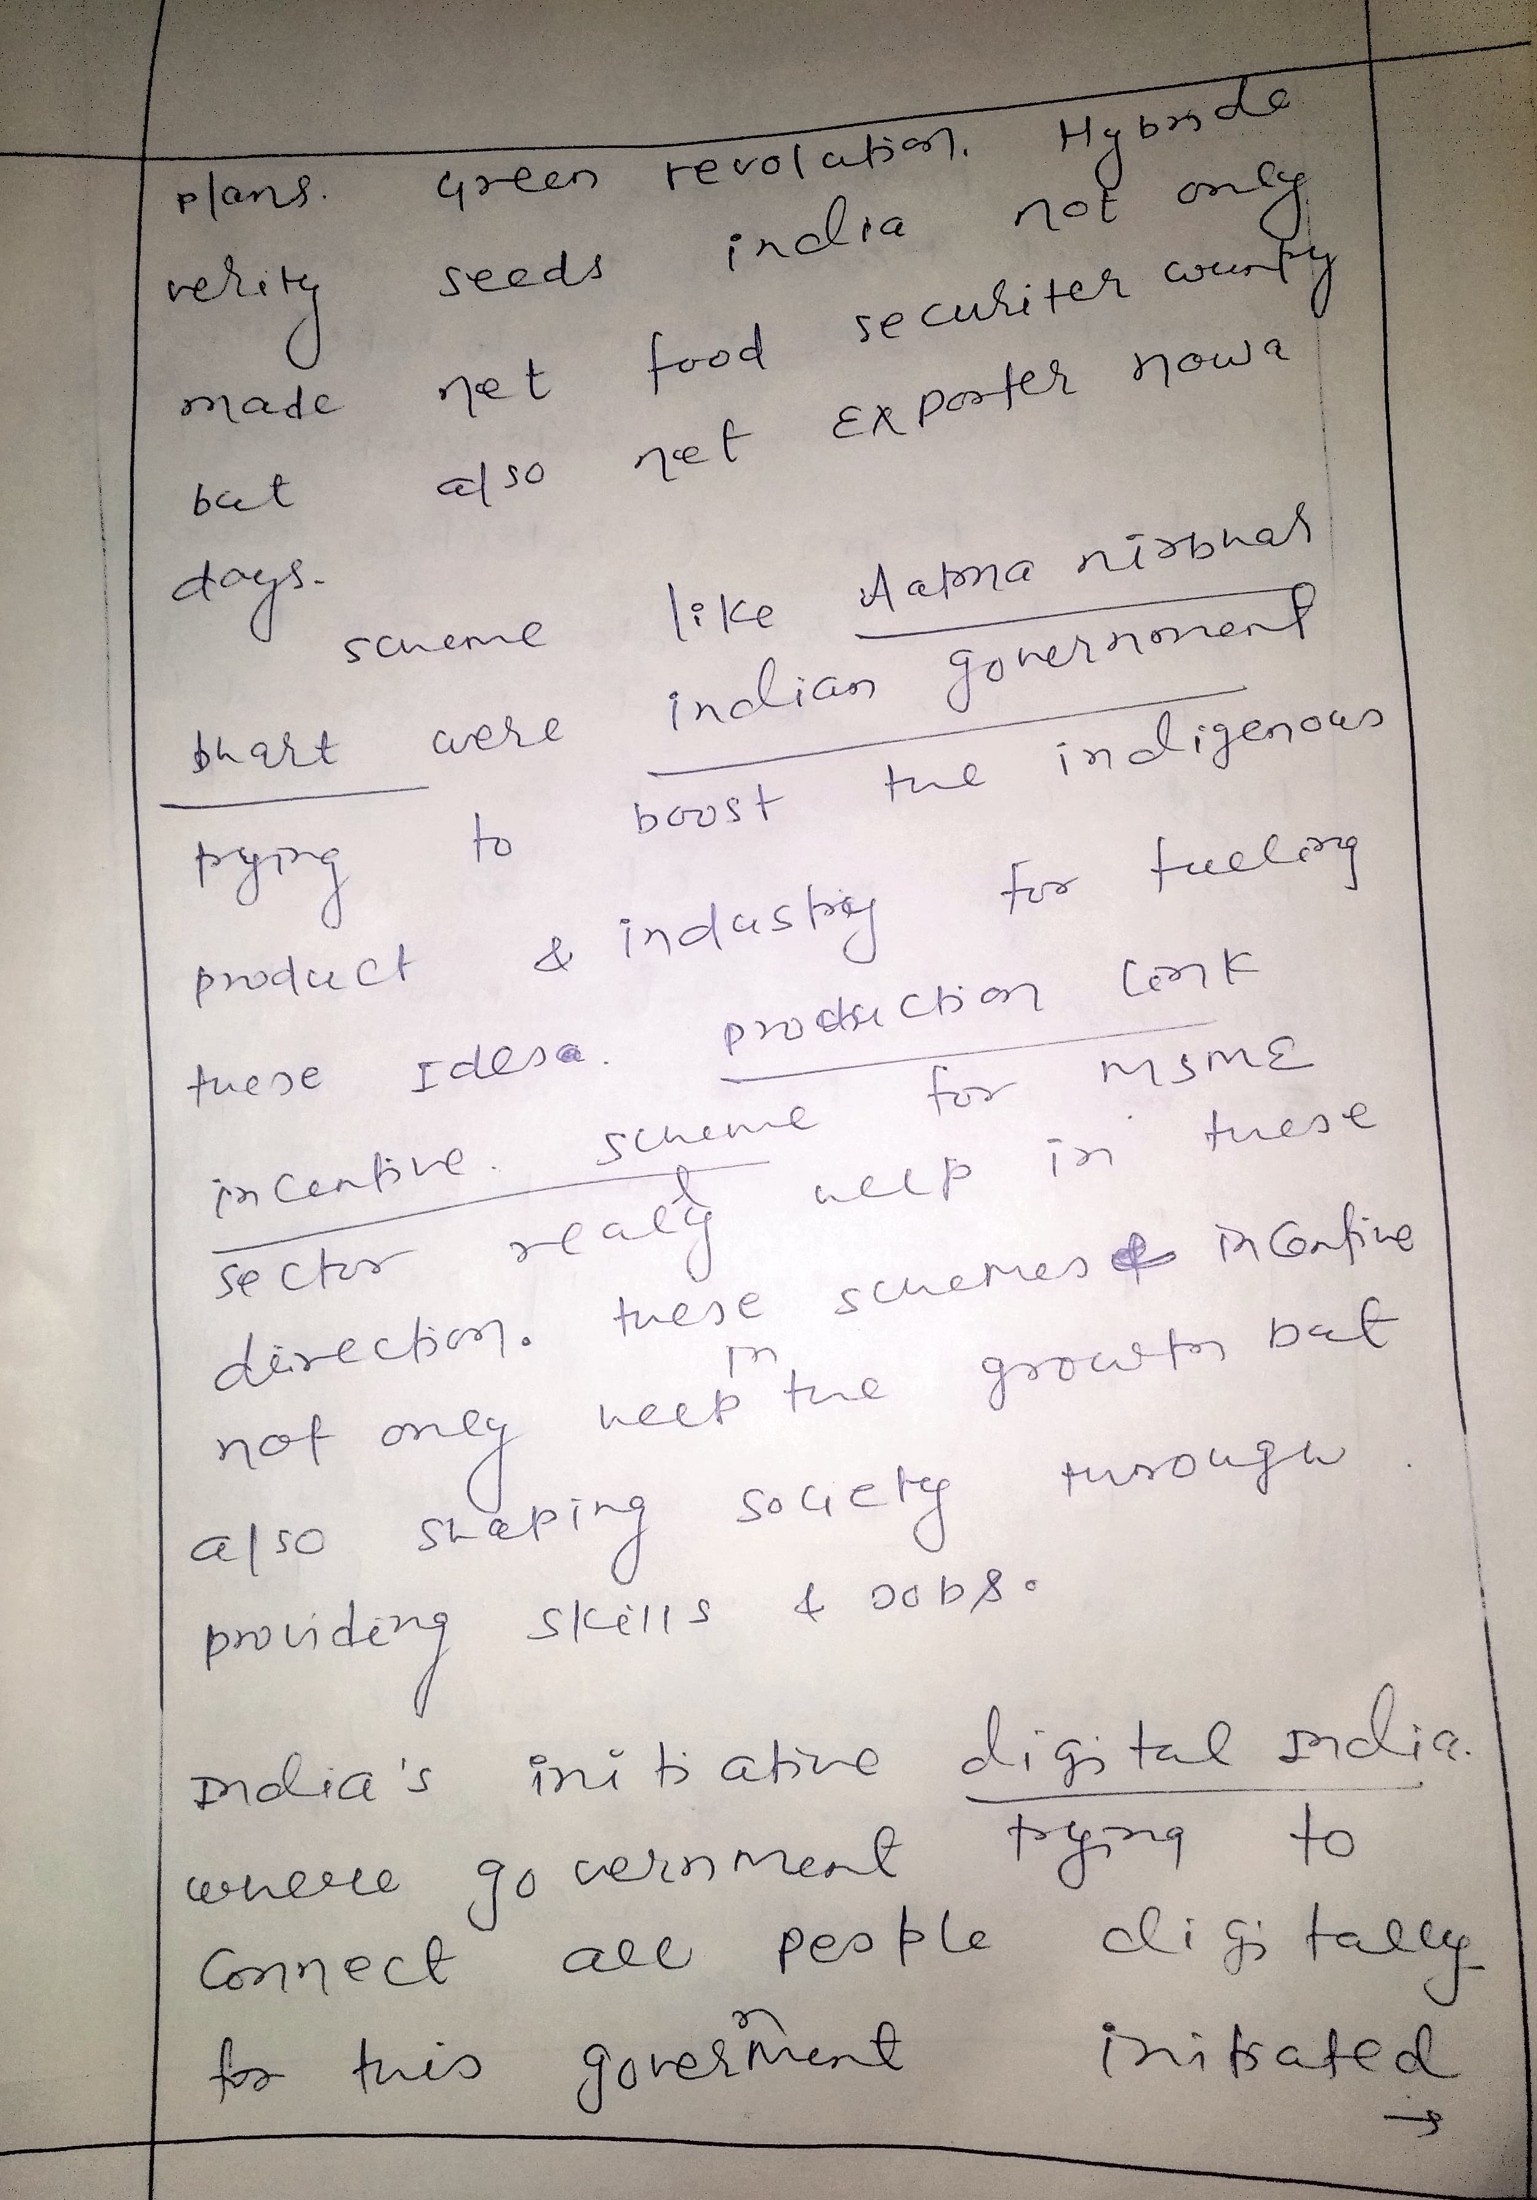 plans. Green revolution. Hybride
verity seeds india not only
made net food securiter county
but also net Exporter nowa
days.
scheme like Aatma nirbhar
bhart were indian government
trying to boost the indigenous
product & industry for fueling
these Idesa. production link
incentive. scheme for MSME
sector realy help in these
direction. these schemes & incentive
not only help in the growth but
also shaping society through
providing skills & Jobs.
India's initiative digital India.
where government trying to
connect all people digitally
for this government initiated
→